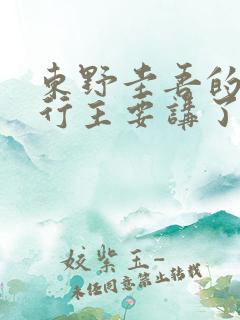 東野圭吾的
行主要講了
姣紫玉-
未经同意禁止转载